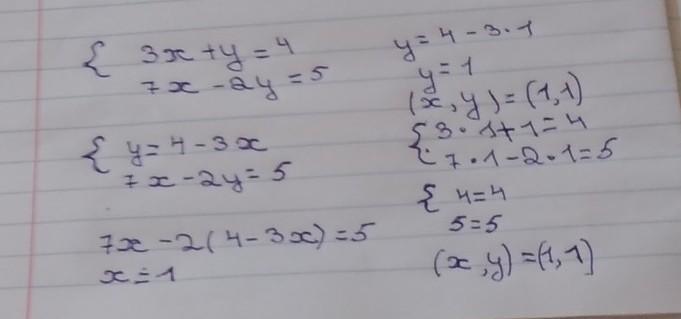 { 3x + y = 4
7x - 2y = 5
{ y = 4 - 3x
7x - 2y = 5
7x - 2(4 - 3x) = 5
x = 1
y = 4 - 3 · 1
y = 1
(x, y) = (1, 1)
{ 3 · 1 + 1 = 4
7 · 1 - 2 · 1 = 5
{ 4 = 4
5 = 5
(x, y) = (1, 1)